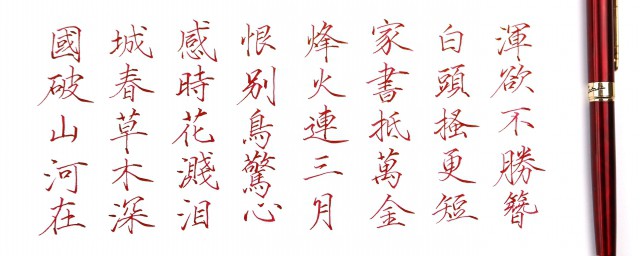 國破山河在
城春草木深
感時花濺泪
恨别鳥驚心
烽火連三月
家書抵萬金
白頭搔更短
渾欲不勝簪